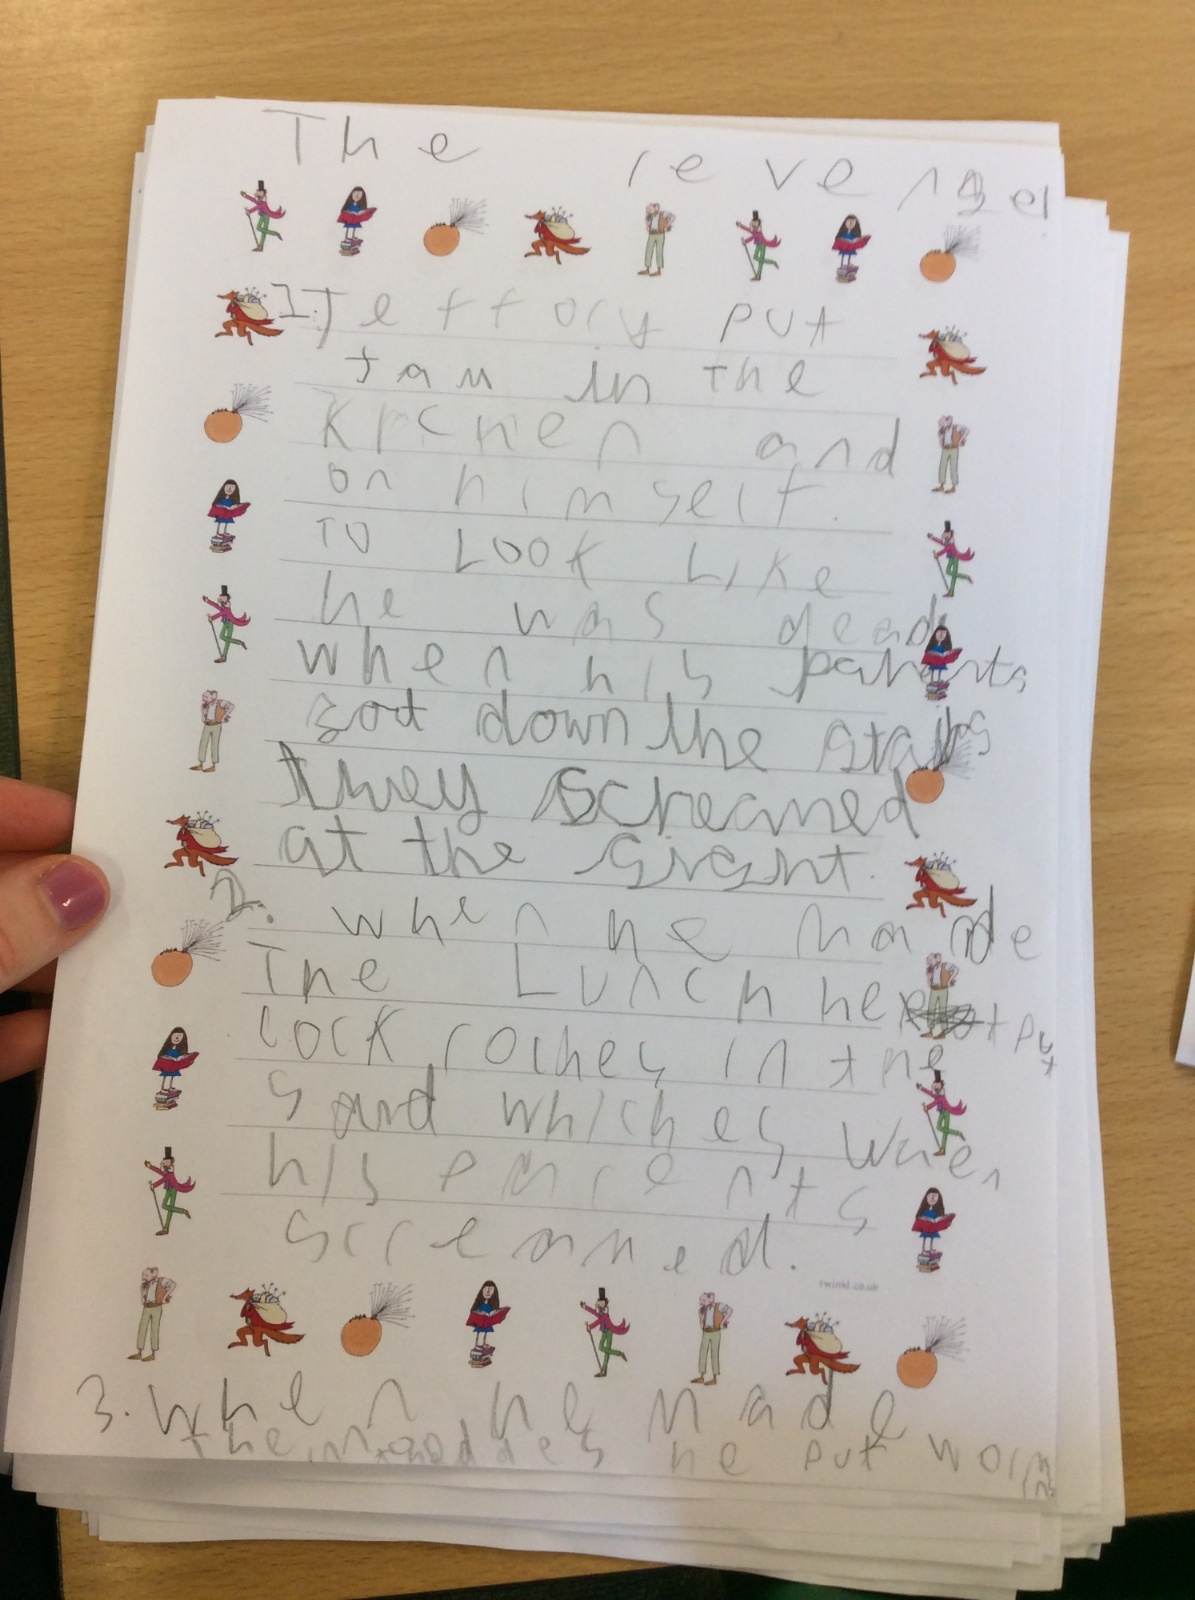 The revenge!
1. Jefforiy put
Jam in the
Kichen and
on himself.
To Look Like
he was dead
when his parents
got down the stairs
they screamed
at the sight.
2. when he made
The Lunch he put
cock roches in the
sandwhiches when
his parents
screamed.
twinkl.co.uk
3. when he made
he put worms